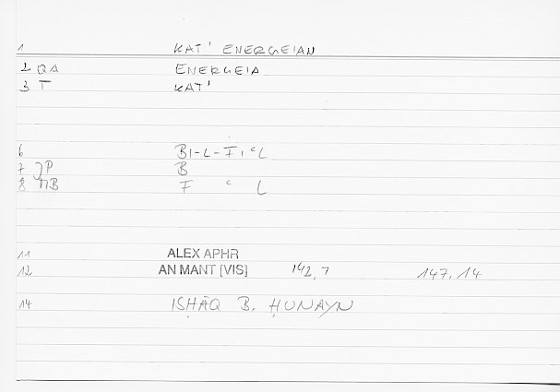 1 KAT' ENERGEIAN
2 QA ENERGEIA
3 T KAT'
6 BI-L-FIʿL
7 JP B
8 MB F ʿ L
11 ALEX APHR
12 AN MANT [VIS] 142,7 147,14
14 ISḤĀQ B. ḤUNAYN